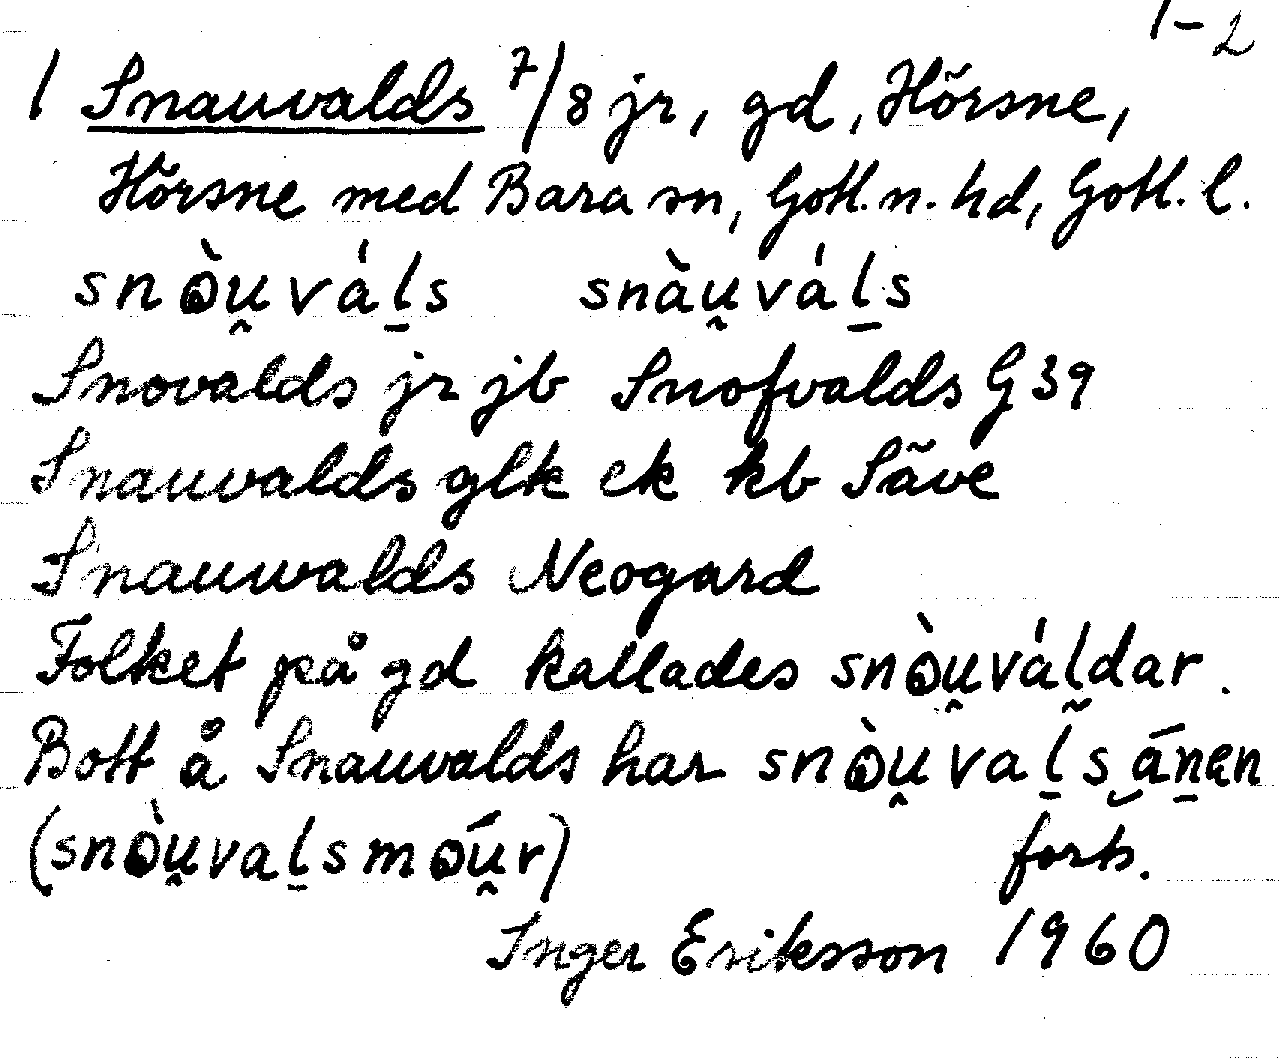 1-2
1 Snauvalds 7/8 jr, gd, Hörsne,
Hörsne med Bara sn, Gotl. n. hd, Gotl. l.
snòu̯váḻs snàu̯váḻs
Snovalds jr jb Snofvalds G 39
Snauvalds glk ek kb Säve
Snauwalds Neogard
Folket på gd kallades snòu̯vál̰dar.
Bott å Snauvalds har snòu̯vaḻs‿áṉen
(snòu̯vaḻsmóu̯r) forts.
Inger Eriksson 1960